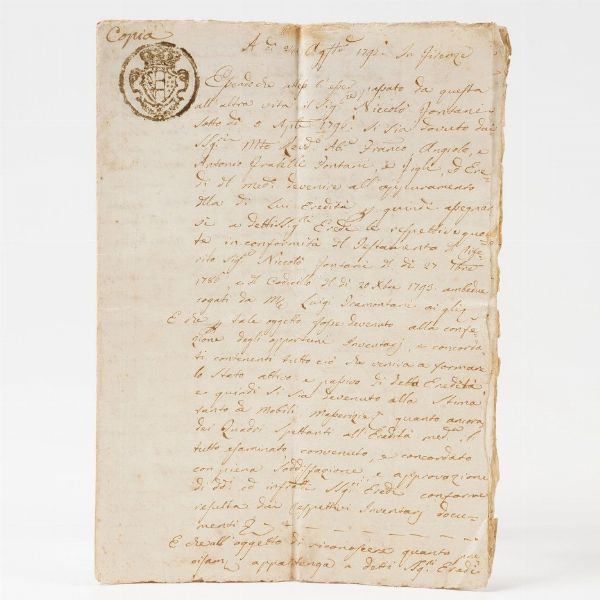 Copia
A dì 24 Agsto 1795. In Firenze
Essendo che dopo l'esser passato da questa
all'altra vita il Sigre Niccolò Fontani
sotto dì 5 Aple 1795. si sia dovuto dai
SSgri Mto Revdo Abe Franco, Angiolo, e
Antonio Fratelli Fontani, e Figli, ed Ere-
di del Medo devenire all'appuramento
della di Lui Eredità, quindi assegnar-
si a detti SSgri Eredi le respettive quo-
te in conformità del Testamento del
rito Sigre Niccolò Fontani del dì 27
178 , e del Codicillo del dì 20 Xbre 1793. ambedue
rogati da Mr Luigi Tramontani
E che tale oggetto fosse devenuto alla confe-
zione degli opportuni Inventarj, e concorda-
ti contenenti tutto ciò che veniva a formare
lo Stato attivo e passivo di detta Eredità
e quindi si sia devenuto alla Stima
tanto di Mobili Masserizie, quanto ancora
dei Quadri spettanti all'Eredità medma il
tutto esaminato, convenuto, e concordato
con piena soddisfazione, e approvazione
di dti ed infatti SSgri Eredi conforme
resulta dai respettivi Inventarj docu-
menti
E che all'oggetto di riconoscere quanto
appartenga a detti SSgri Eredi